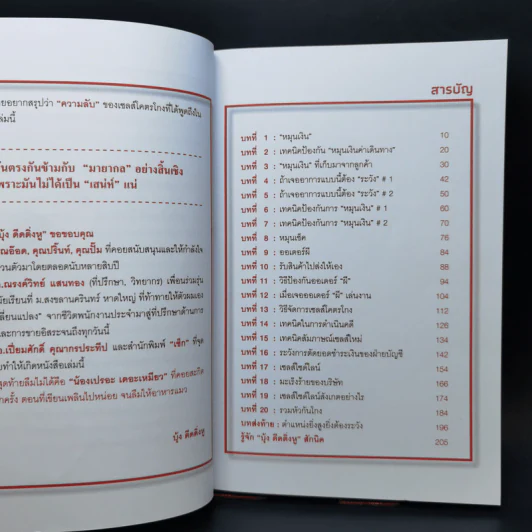 ยอยากสรุปว่า "ความลับ" ของเซลส์โคตรโกงที่ได้พูดถึงใน
เล่มนี้
ันตรงกันข้ามกับ "มายากล" อย่างสิ้นเชิง
พราะมันไม่ได้เป็น "เสน่ห์" แน่
"บุ้ง ดีดติ่งหู" ขอขอบคุณ
ุณอ๊อด, คุณปริ๊นท์, คุณปั้ม ที่คอยสนับสนุนและให้กำลังใจ
่วนตัวมาโดยตลอดนับหลายสิบปี
.ณรงค์วิทย์ แสนทอง (ที่ปรึกษา, วิทยากร) เพื่อนร่วมรุ่น
ัยเรียนที่ ม.สงขลานครินทร์ หาดใหญ่ ที่ท้าทายให้ตัวผมเอง
ลี่ยนแปลง" จากชีวิตพนักงานประจำมาสู่ที่ปรึกษาด้านการ
และการขายอิสระจนถึงทุกวันนี้
.เปี่ยมศักดิ์ คุณากรประทีป และสำนักพิมพ์ "เช็ก" ที่จุด
ยทำให้เกิดหนังสือเล่มนี้
ุดท้ายลืมไม่ได้คือ "น้องเปรอะ เตอะเหมียว" ที่คอยสะกิด
ุกครั้ง ตอนที่เขียนเพลินไปหน่อย จนลืมให้อาหารแมว
สารบัญ
บทที่ 1 : "หมุนเงิน" 10
บทที่ 2 : เทคนิคป้องกัน "หมุนเงินค่าเดินทาง" 20
บทที่ 3 : "หมุนเงิน" ที่เก็บมาจากลูกค้า 30
บทที่ 4 : ถ้าเจออาการแบบนี้ต้อง "ระวัง" # 1 42
บทที่ 5 : ถ้าเจออาการแบบนี้ต้อง "ระวัง" # 2 50
บทที่ 6 : เทคนิคป้องกันการ "หมุนเงิน" # 1 60
บทที่ 7 : เทคนิคป้องกันการ "หมุนเงิน" # 2 70
บทที่ 8 : หมุนเช็ค 76
บทที่ 9 : ออเดอร์ผี 84
บทที่ 10 : รับสินค้าไปส่งให้เอง 88
บทที่ 11 : วิธีป้องกันออเดอร์ "ผี" 94
บทที่ 12 : เมื่อเจอออเดอร์ "ผี" เล่นงาน 104
บทที่ 13 : วิธีจัดการเซลส์โคตรโกง 112
บทที่ 14 : เทคนิคในการดำเนินคดี 128
บทที่ 15 : เทคนิคสัมภาษณ์เซลส์ใหม่ 134
บทที่ 16 : ระวังการตัดยอดชำระเงินของฝ่ายบัญชี 144
บทที่ 17 : เซลส์ไซด์ไลน์ 154
บทที่ 18 : มะเร็งร้ายของบริษัท 166
บทที่ 19 : เซลส์ไซด์ไลน์สังเกตอย่างไร 174
บทที่ 20 : รวมหัวกันโกง 184
บทส่งท้าย : ตำแหน่งยิ่งสูงยิ่งต้องระวัง 196
รู้จัก "บุ้ง ดีดติ่งหู" สักนิด 205
บุ้ง ดีดติ่งหู